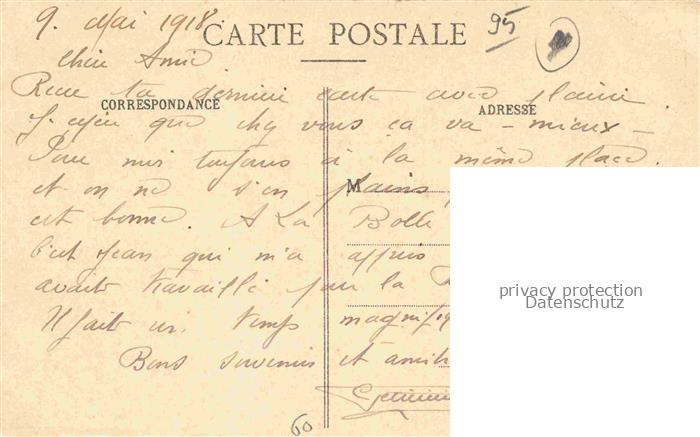 9. Mai 1918
CARTE POSTALE
95
Cher Amie
Recu ta dernière carte avec plaisir
CORRESPONDANCE
ADRESSE
que chez vous ça va - mieux -
Pour moi toujours à la même place.
et on ne s'en plains,
M
est bonne. A La Bolle
c'est Jean qui m'a appris
avait travaillé pour la
Il fait un temps magnifi
Bons souvenirs et amit
60
privacy protection
Datenschutz